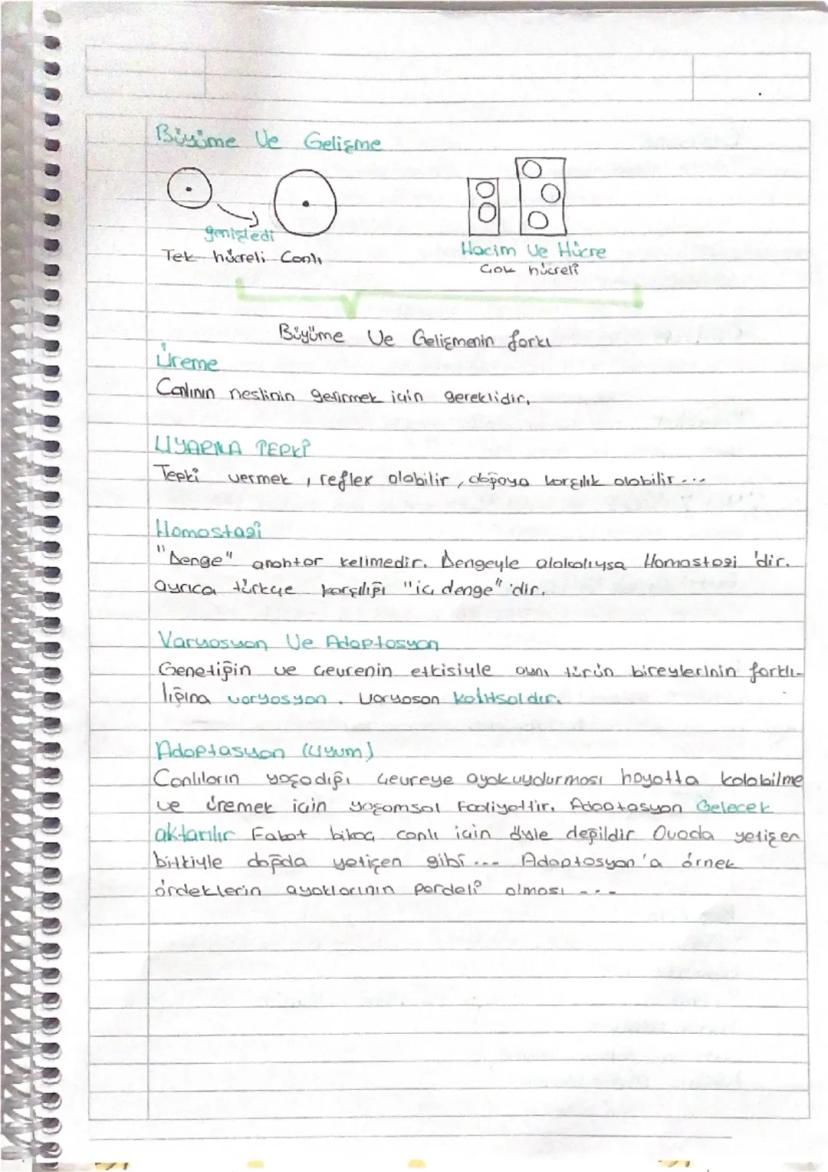 Büyüme Ve Gelişme
genişledi
Tek hücreli Canlı
Hacim Ve Hücre
Çok hücreli
Büyüme Ve Gelişmenin farkı
Üreme
Canlının neslinin getirmek için gereklidir.
UYARNA TEPKİ
Tepki vermek, reflex olabilir, doğaya karşılık olabilir...
Homostazi
"Denge" anahtar kelimedir. Dengeyle alakalıysa Homastazi 'dir.
ayrıca türkçe karşılığı "iç denge" 'dir.
Varyasyon Ve Adaptasyon
Genetiğin ve çevrenin etkisiyle aynı türün bireylerinin farklı-
lığına varyasyon. Varyason kalıtsaldır.
Adaptasyon (Uyum)
Canlıların yaşadığı çevreye ayakuydurması hayatta kalabilme
ve üremek için yaşamsal Faaliyettir. Adaptasyon Gelecek
aktarılır Fakat bikaç canlı için öyle değildir Ovada yetişen
bitkiyle dağda yetişen gibi... Adaptasyon'a örnek
ördeklerin ayaklarının perdeli olması ...